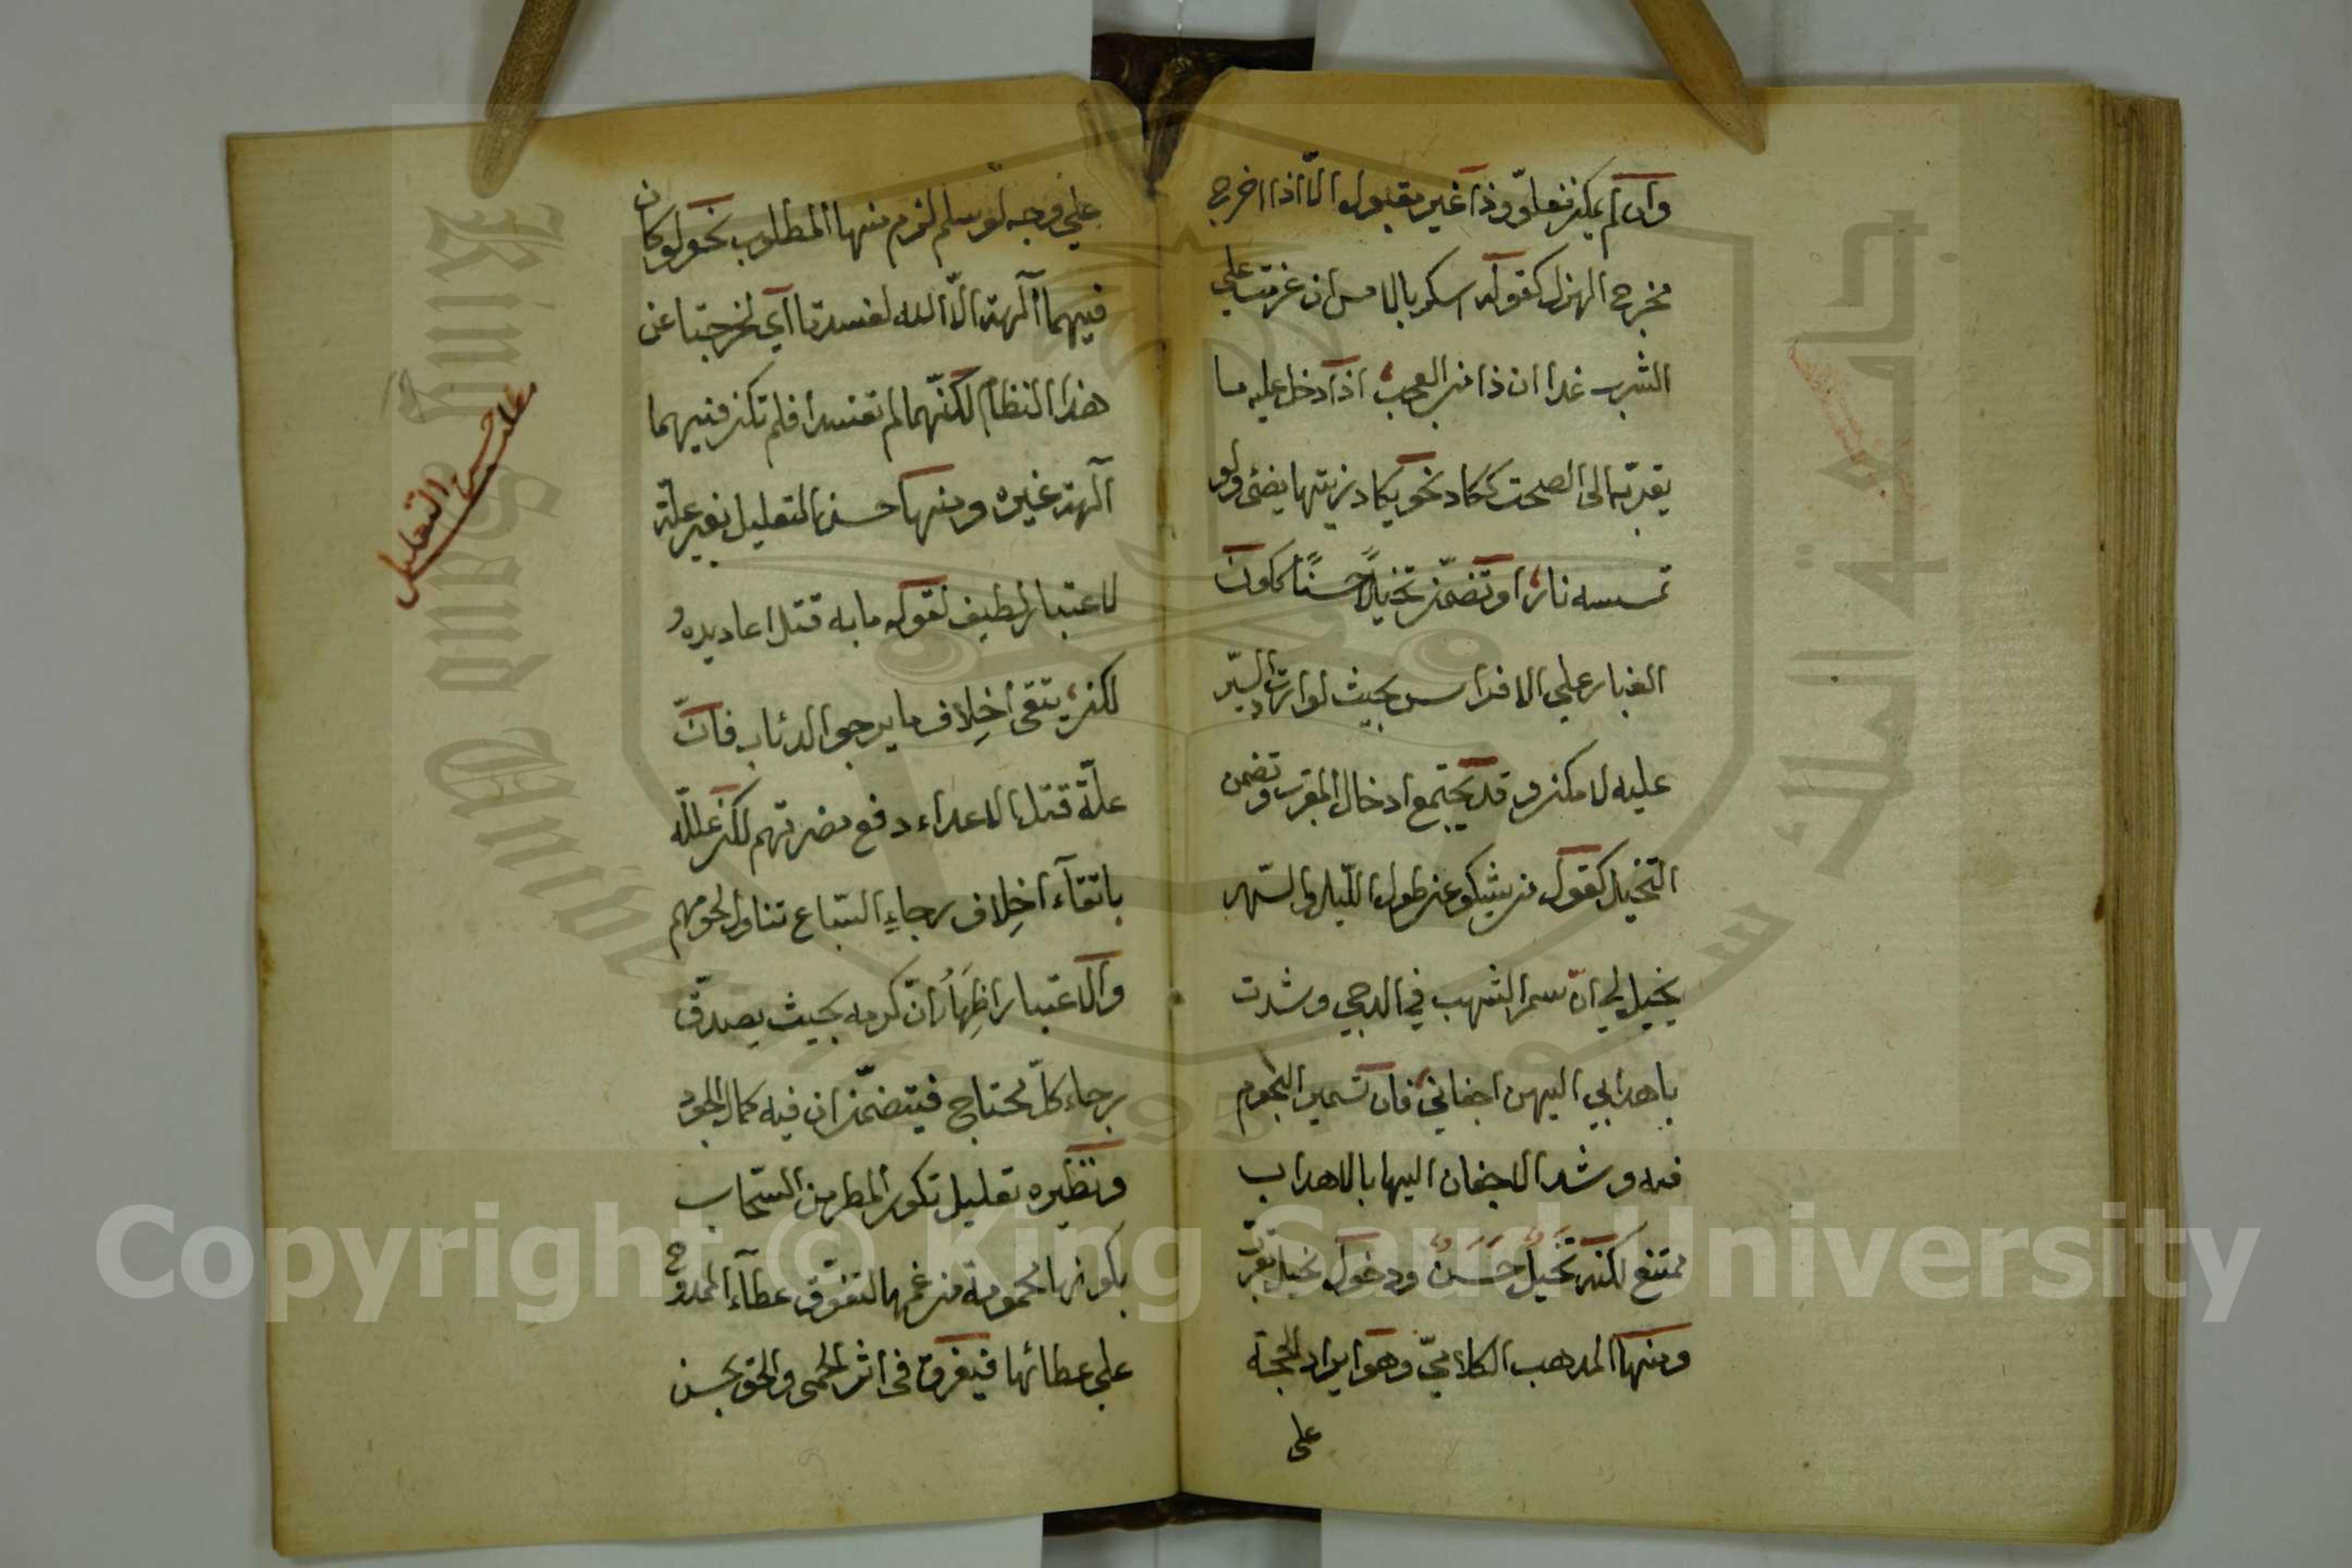 وان لم يكن فغلوّ وذا غير مقبول الّا اذا اخرج
مخرج الهزل كقوله اسكر بالامس ان عزمت على
الشرب غدا ان ذا من العجب اذا دخل عليه ما
يقرّبه الى الصحت ككاد نحو يكاد زيتها يضئ ولو
تمسسه نار او تضمّن تخيلًا حسنًا ككون
الغبار على الافراس بحيث لو ارادت السّير
عليه لامكن وقد يجتمع ادخال المقرب وتضمن
التخيل كقول من يشكو عن طول اللّيل والسّهر
يخيل لي انّ سمر الشهب في الدجى وشدت
باهدابي اليهن اجفاني فان تسمير النجوم
فيه وشد الاجفان اليها بالاهداب
ممتنع لكنه تخيل حسن ودخول تخيل تقرب
ومنها المذهب الكلاميّ وهو ايراد الحجة
على
على وجه لو سلم لزم منها المطلوب نحو لو كان
فيهما آلهة الّا الله لفسدتا اي لخرجتا عن
هذا النظام لكنّهما لم تفسدا فلم تكن فيهما
آلهة غيره ومنها حسن التعليل بغير علة
لاعتبار لطيف لقوله ما به قتل اعاديه و
لكن يتقى اخلاف ما يرجو الذئاب فانّ
علّة قتل الاعداء دفع مضرتهم لكن علله
باتقآء اخلاف رجاءِ السّباع تناول لحومهم
والاعتبار اظهار انّ كرمه بحيث يصدّق
رجاء كلّ محتاج فيتضمّن ان فيه كمال الجود
ونظيره تعليل تكون المطر من السّحاب
بكونها محمومة من غمها لتفوّق عطآء الممدوح
على عطائها فيغرق في اثر الحمى والحق بحسن
حسن التعليل
Copyright © King Saud University
King Saud University
جامعة الملك سعود
1957